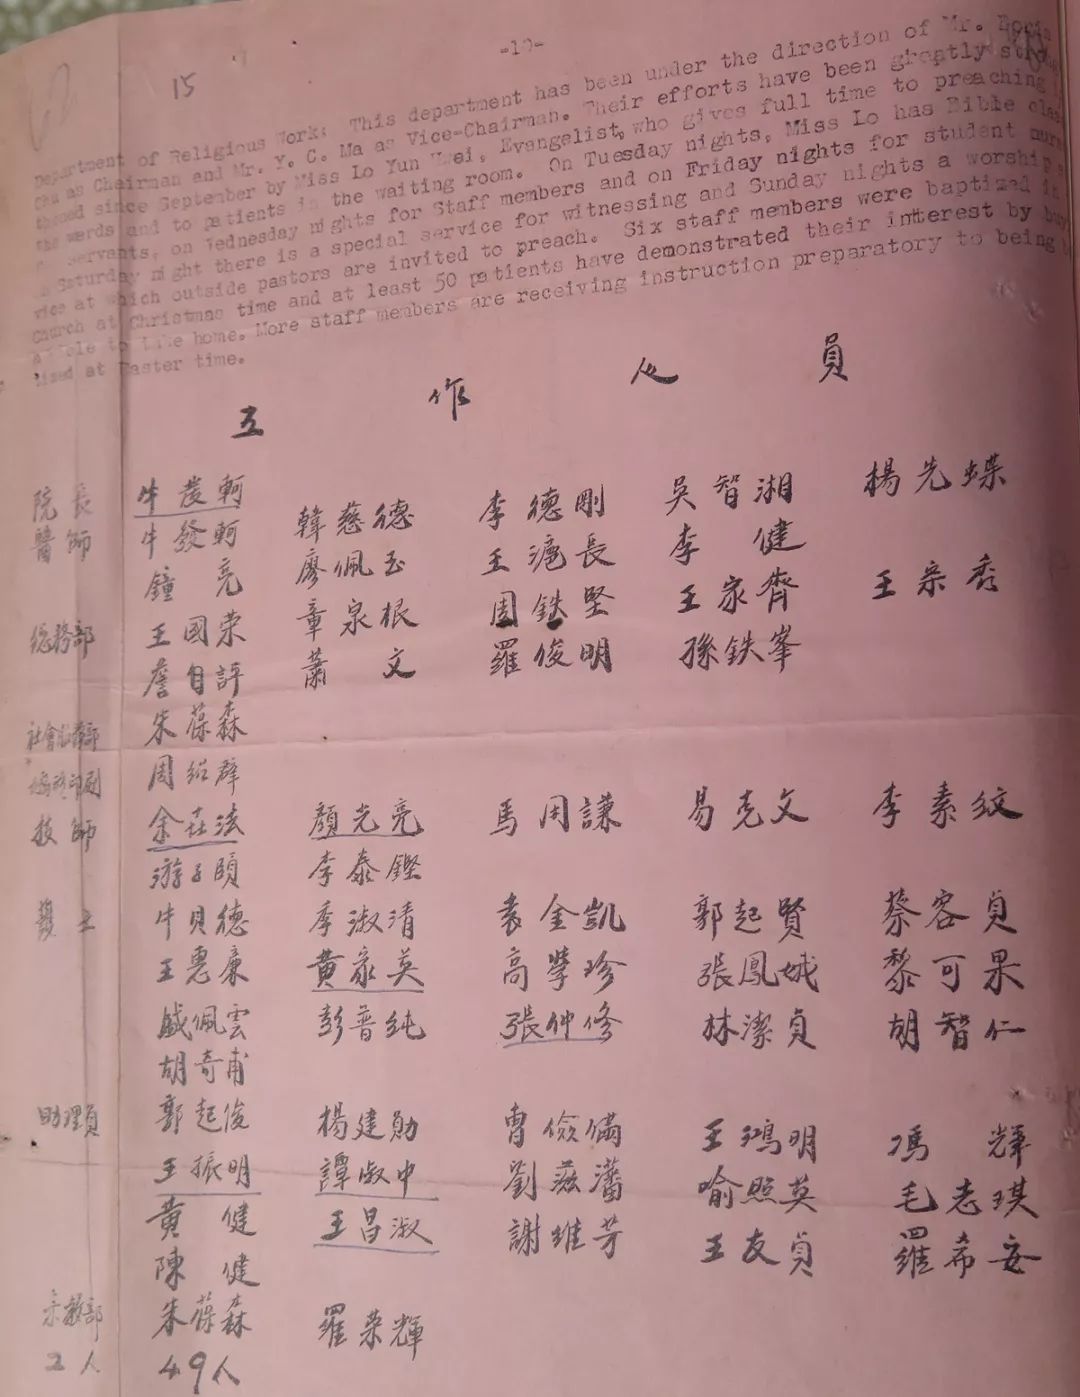 -10-
15
Department of Religious Work: This department has been under the direction of Mr. Boris
Chu as Chairman and Mr. Y. C. Ma as Vice-Chairman. Their efforts have been greatly
thened since September by Miss Lo Yun Hwei, Evangelist, who gives full time to preaching
the wards and to patients in the waiting room. On Tuesday nights, Miss Lo has Bible
servants, on Wednesday nights for Staff members and on Friday nights for student
Saturday night there is a special service for witnessing and Sunday nights a worship
vice at which outside pastors are invited to preach. Six staff members were baptized in
Church at Christmas time and at least 50 patients have demonstrated their interest by
a Bible to take home. More staff members are receiving instruction preparatory to being
tized at Easter time.
工 作 人 員
院長 牛發軻
醫師 牛發軻 韓慈德 李德剛 吳智湘 楊先蝶
鐘亮 廖佩玉 王滬長 李健
總務部 王國榮 章泉根 周鉄堅 王家齊 王宗秀
詹自評 蕭文 羅俊明 孫鉄峯
社會服務部 朱葆森
周紹群
技師 余在法 顏光亮 馬用謙 易克文 李素紋
游子頤 李泰鏗
護士 牛貝德 季淑清 袁金凱 郭起賢 蔡容貞
王惠廉 黃家英 高學珍 張鳳娥 黎可果
戚佩雲 彭普純 張仲修 林潔貞 胡智仁
胡奇甫
助理員 郭起俊 楊建勛 曹儉 王鴻明 馮輝
王振明 譚淑中 劉茲藩 喻照英 毛志琪
黃健 王昌淑 謝維芳 王友貞 羅希安
陳健
宗教部 朱葆森 羅榮輝
工人 49人